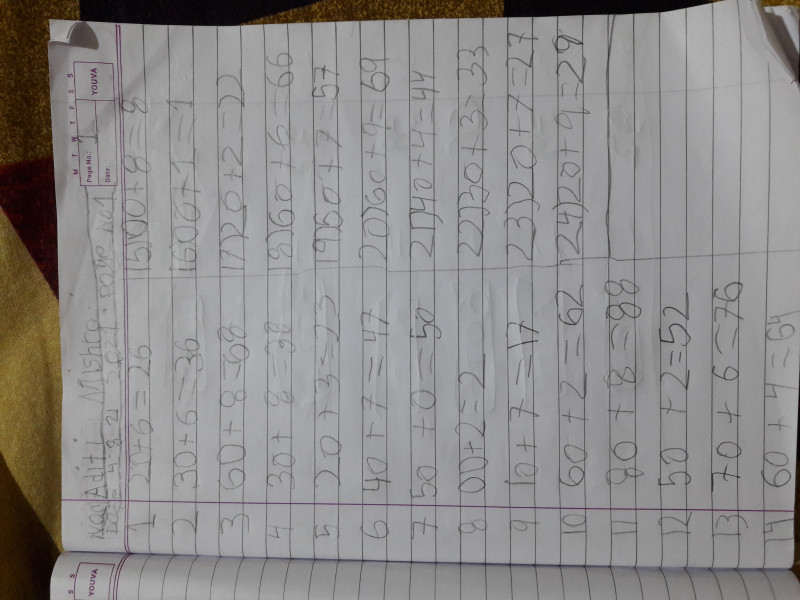 M T W T F S S
Page No.: 1
YOUVA
Date:
Aditi Mishra
4 8 2021 page no 1
1 20+6=26
2 30+6=36
3 60+8=68
4 30+8=38
5 20+3=23
6 40+7=47
7 50+0=50
8 00+2=2
9 10+7=17
10 60+2=62
11 80+8=88
12 50+2=52
13 70+6=76
14 60+4=64
15)00+8=8
16)00+1=1
17)20+2=22
18)60+6=66
19)50+7=57
20)60+9=69
21)40+4=44
22)30+3=33
23)20+7=27
24)20+9=29
S S
YOUVA